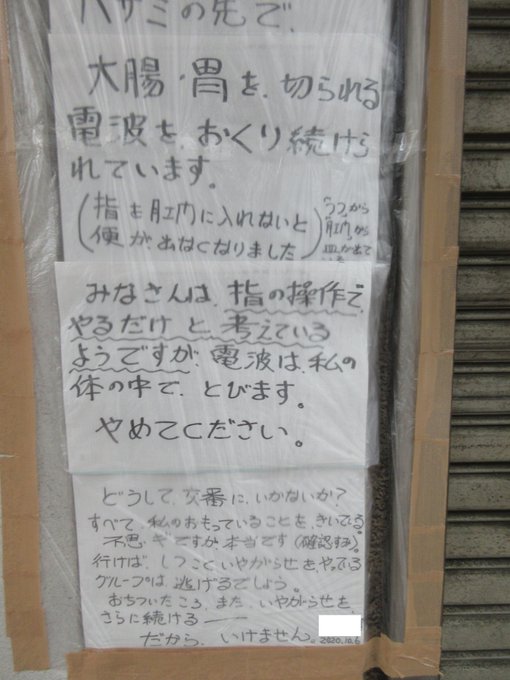 ハサミの先で、
大腸・胃を、切られる
電波を、おくり続けら
れています。
(指を肛門に入れないと
便が出なくなりました)
うつから
肛門から
血が出て
みなさんは、指の操作で、
やるだけと、考えている
ようですが、電波は、私の
体の中で、とびます。
やめてください。
どうして、交番に、いかないか?
すべて、私のおもっていることを、きいてる。
不思ギですが、本当です(確認すみ)。
行けば、しつこくいやがらせを、やってる
グループは、逃げるでしょう。
おちついたころ、また、いやがらせを、
さらに続ける——
だから、いけません。
2020.10.6